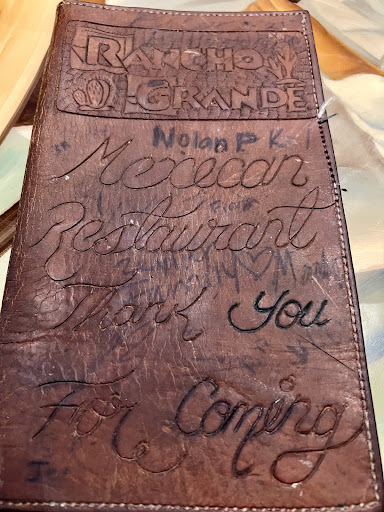 RANCHO
GRANDE
Nolan P K
"Mexecan
Restaurant
Thank You
For Coming